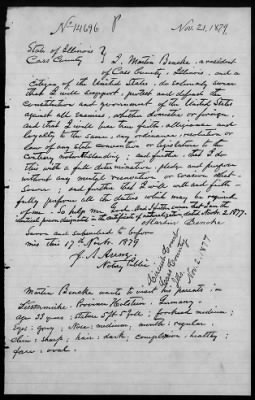 No 14696
Nov. 21, 1879
State of Illinois
Cass County
I, Martin Bencke, a resident
of Cass County, Illinois, and a
Citizen of the United States, do solemnly swear
that I will support, protect and defend the
Constitution and government of the United States
against all enemies, whether domestic or foreign;
and that I will bear true faith, allegiance and
loyalty to the same, any ordinance, resolution or
law of any state convention or legislature to the
Contrary notwithstanding; and further, that I do
this with a full determination, pledge and purpose
without any mental reservation or evasion what-
soever; and further that I will well and faith-
fully perform all the duties which may be required
of me. So help me God. And I further swear that I am the
identical person described in the certificate of naturalization dated Novbr. 2. 1877.
Martin Bencke
Sworn and subscribed to before
me this 17th Novbr. 1879
Notary Public
Circuit Court
Cass County
Ills.
Nov. 2, 1877
Martin Bencke wants to visit his parents, in
Province Holstein, Germany.
Age 33 years; stature 5 ft. 5 full; forehead medium;
Eyes: gray; Nose: medium; mouth: regular;
chin: sharp; hair: dark; complexion, healthy;
face: oval.